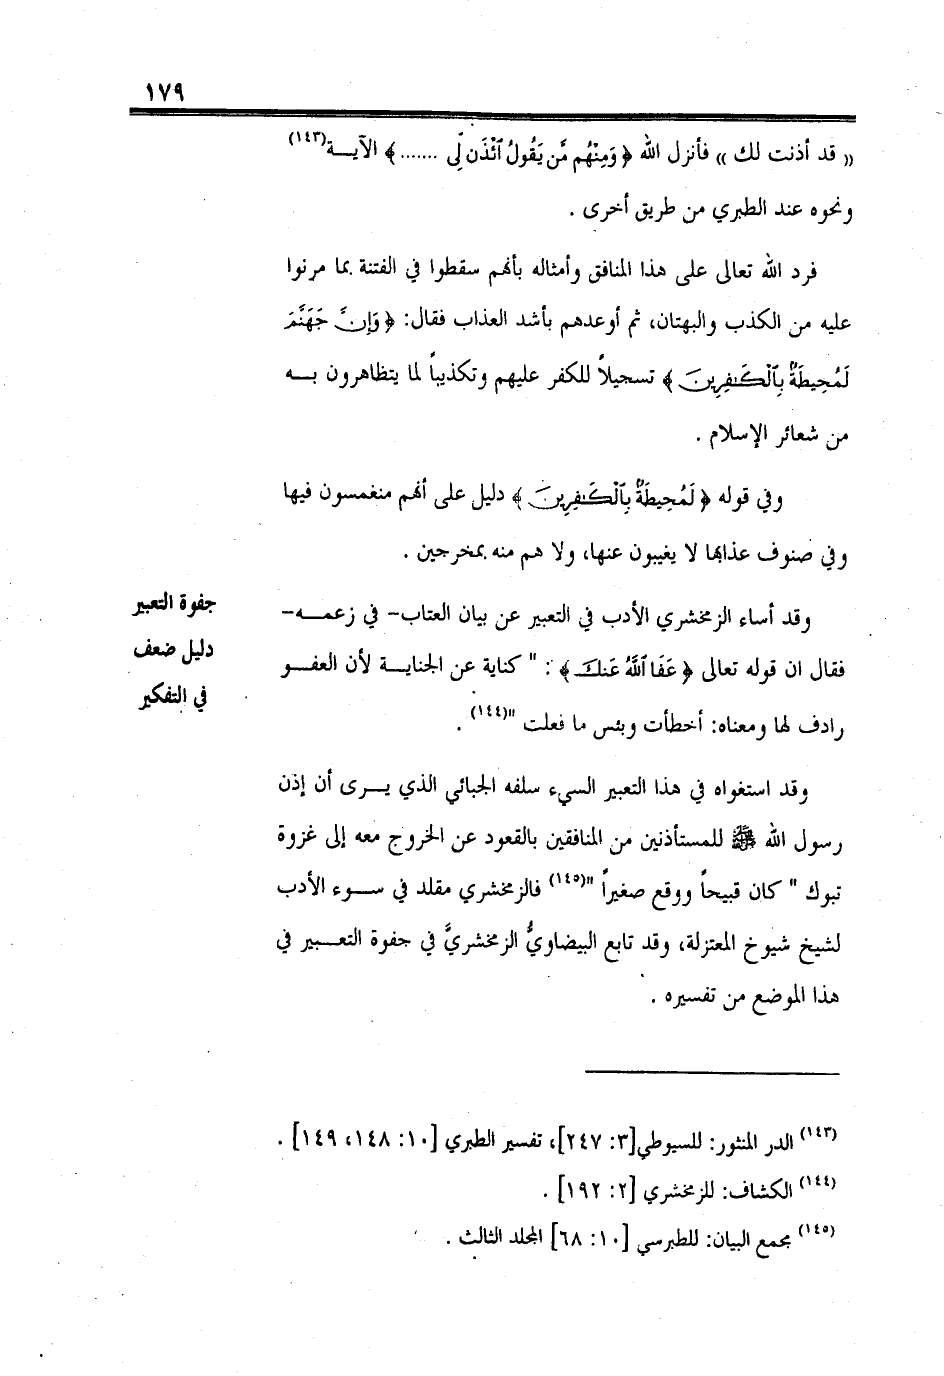 ١٧٩
« قد أذنت لك » فأنزل الله ﴿ وَمِنْهُم مَّن يَقُولُ ٱئْذَن لِّى ....... ﴾ الآيـة(١٤٣)
ونحوه عند الطبري من طريق أخرى .
فرد الله تعالى على هذا المنافق وأمثاله بأنهم سقطوا في الفتنة بما مرنوا
عليه من الكذب والبهتان، ثم أوعدهم بأشد العذاب فقال: ﴿ وَإِنَّ جَهَنَّمَ
لَمُحِيطَةٌۢ بِٱلْكَـٰفِرِينَ ﴾ تسجيلاً للكفر عليهم وتكذيباً لما يتظاهرون بـه
من شعائر الإسلام .
وفي قوله ﴿ لَمُحِيطَةٌۢ بِٱلْكَـٰفِرِينَ ﴾ دليل على أنهم منغمسون فيها
وفي صنوف عذابها لا يغيبون عنها، ولا هم منه بمخرجين .
جفوة التعبير
دليل ضعف
في التفكير
وقد أساء الزمخشري الأدب في التعبير عن بيان العتاب- في زعمـه-
فقال ان قوله تعالى ﴿ عَفَا ٱللَّهُ عَنكَ ﴾ : " كناية عن الجنايـة لأن العفـو
رادف لها ومعناه: أخطأت وبئس ما فعلت "(١٤٤) .
وقد استغواه في هذا التعبير السيء سلفه الجبائي الذي يـرى أن إذن
رسول الله ﷺ للمستأذنين من المنافقين بالقعود عن الخروج معه إلى غزوة
تبوك " كان قبيحاً ووقع صغيراً "(١٤٥) فالزمخشري مقلد في سـوء الأدب
لشيخ شيوخ المعتزلة، وقد تابع البيضاويُّ الزمخشريَّ في جفوة التعـبير في
هذا الموضع من تفسيره .
(١٤٣) الدر المنثور: للسيوطي[٣: ٢٤٧]، تفسير الطبري [١٠: ١٤٨، ١٤٩] .
(١٤٤) الكشاف: للزمخشري [٢: ١٩٢] .
(١٤٥) مجمع البيان: للطبرسي [١٠: ٦٨] المجلد الثالث .